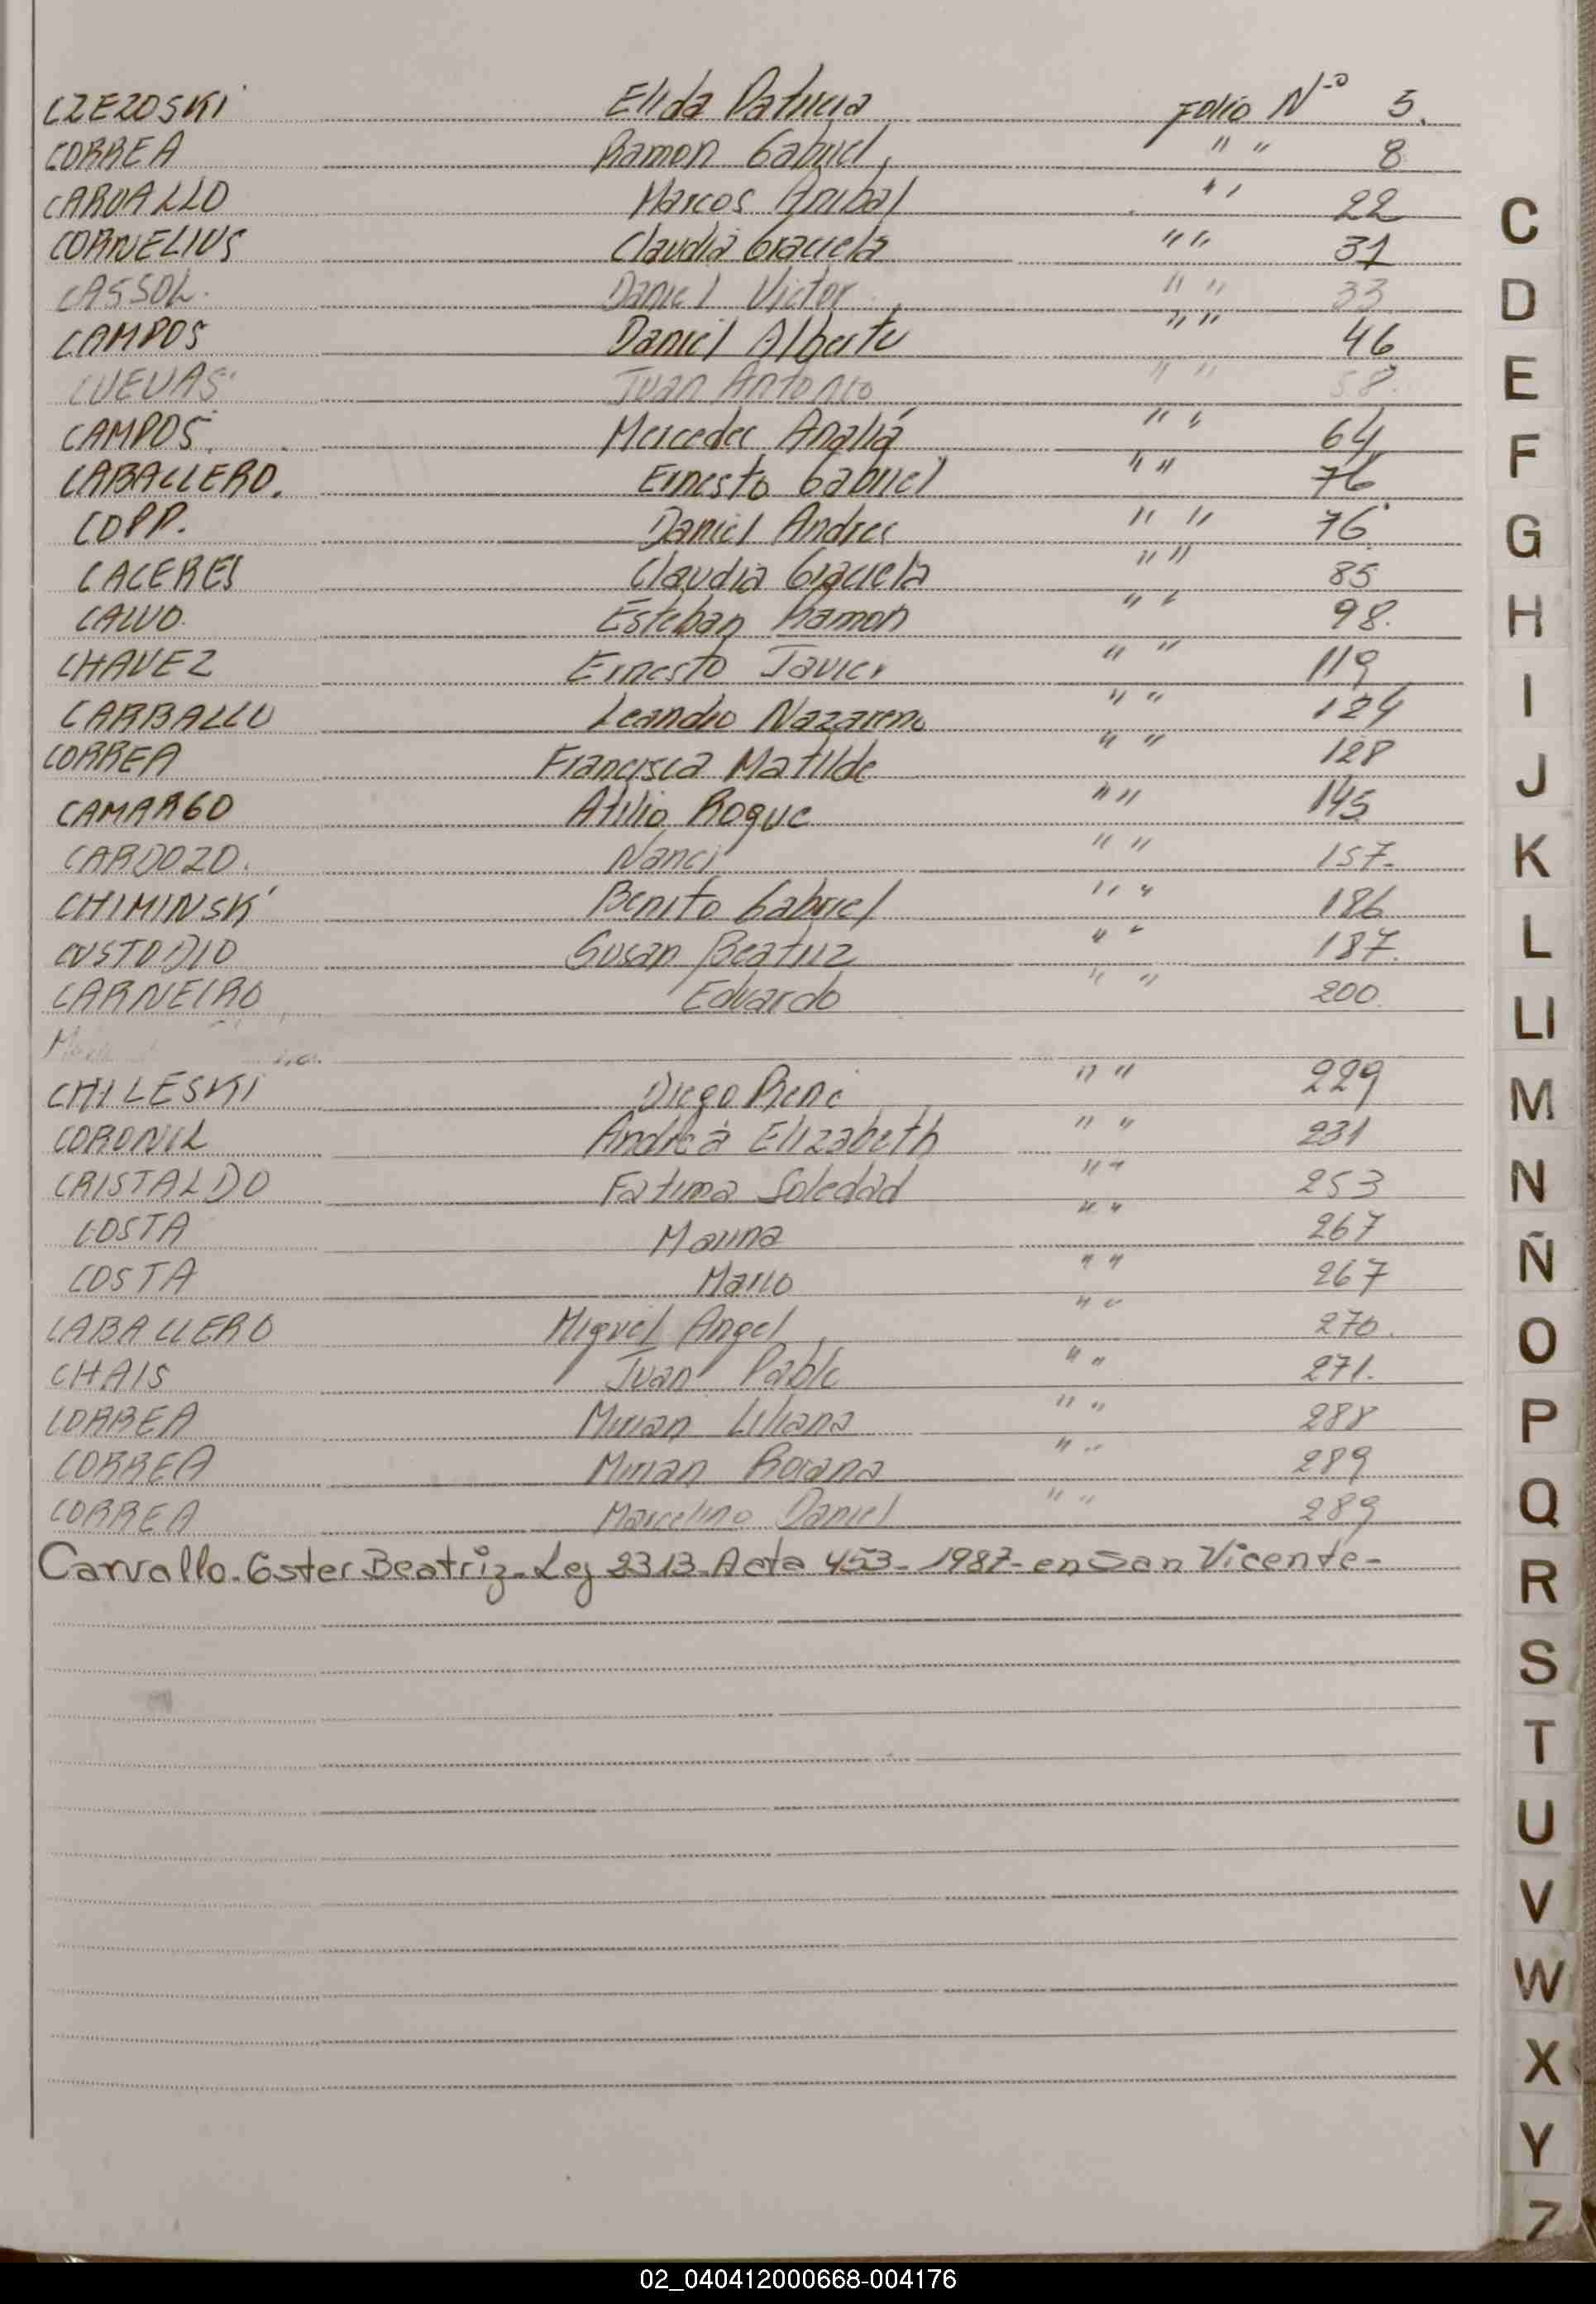 CZEZOSKI Elida Patricia Folio Nº 5.
CORREA Ramon Gabriel, " " 8
CARVALLO Marcos Anibal " " 22
CORNELIUS Claudia Graciela " " 31
CASSOL. Daniel Victor " " 33
CAMPOS Daniel Alberto " " 46
CUEVAS Juan Antonio " " 58.
CAMPOS. Mercedes Analía " " 64
CABALLERO. Ernesto Gabriel " " 76
COPP. Daniel Andres " " 76.
CACERES Claudia Graciela " " 85
CALVO. Esteban Ramon " " 98.
CHAVEZ Ernesto Javier " " 119
CARBALLO Leandro Nazareno " " 124
CORREA Francisca Matilde " " 128
CAMARGO Atilio Roque " " 145
CARDOZO. Nanci " " 157.
CHIMINSKI Benito Gabriel " " 186
CUSTODIO Susan Beatriz " " 187.
CARNEIRO Eduardo " " 200.
CHILESKI Diego Rene " " 229
CORONIL Andrea Elizabeth " " 231
CRISTALDO Fatima Soledad " " 253
COSTA Marina " " 267
COSTA Mario " " 267
CABALLERO Miguel Angel, " " 270.
CHAIS Juan Pablo " " 271.
CORREA Mirian Liliana " " 288
CORREA Mirian Rosana " " 289
CORREA Marcelino Daniel " " 289
Carvallo. Ester Beatriz. Ley 2313. Acta 453- 1987- en San Vicente-
C
D
E
F
G
H
I
J
K
L
Ll
M
N
Ñ
O
P
Q
R
S
T
U
V
W
X
Y
Z
02_040412000668-004176